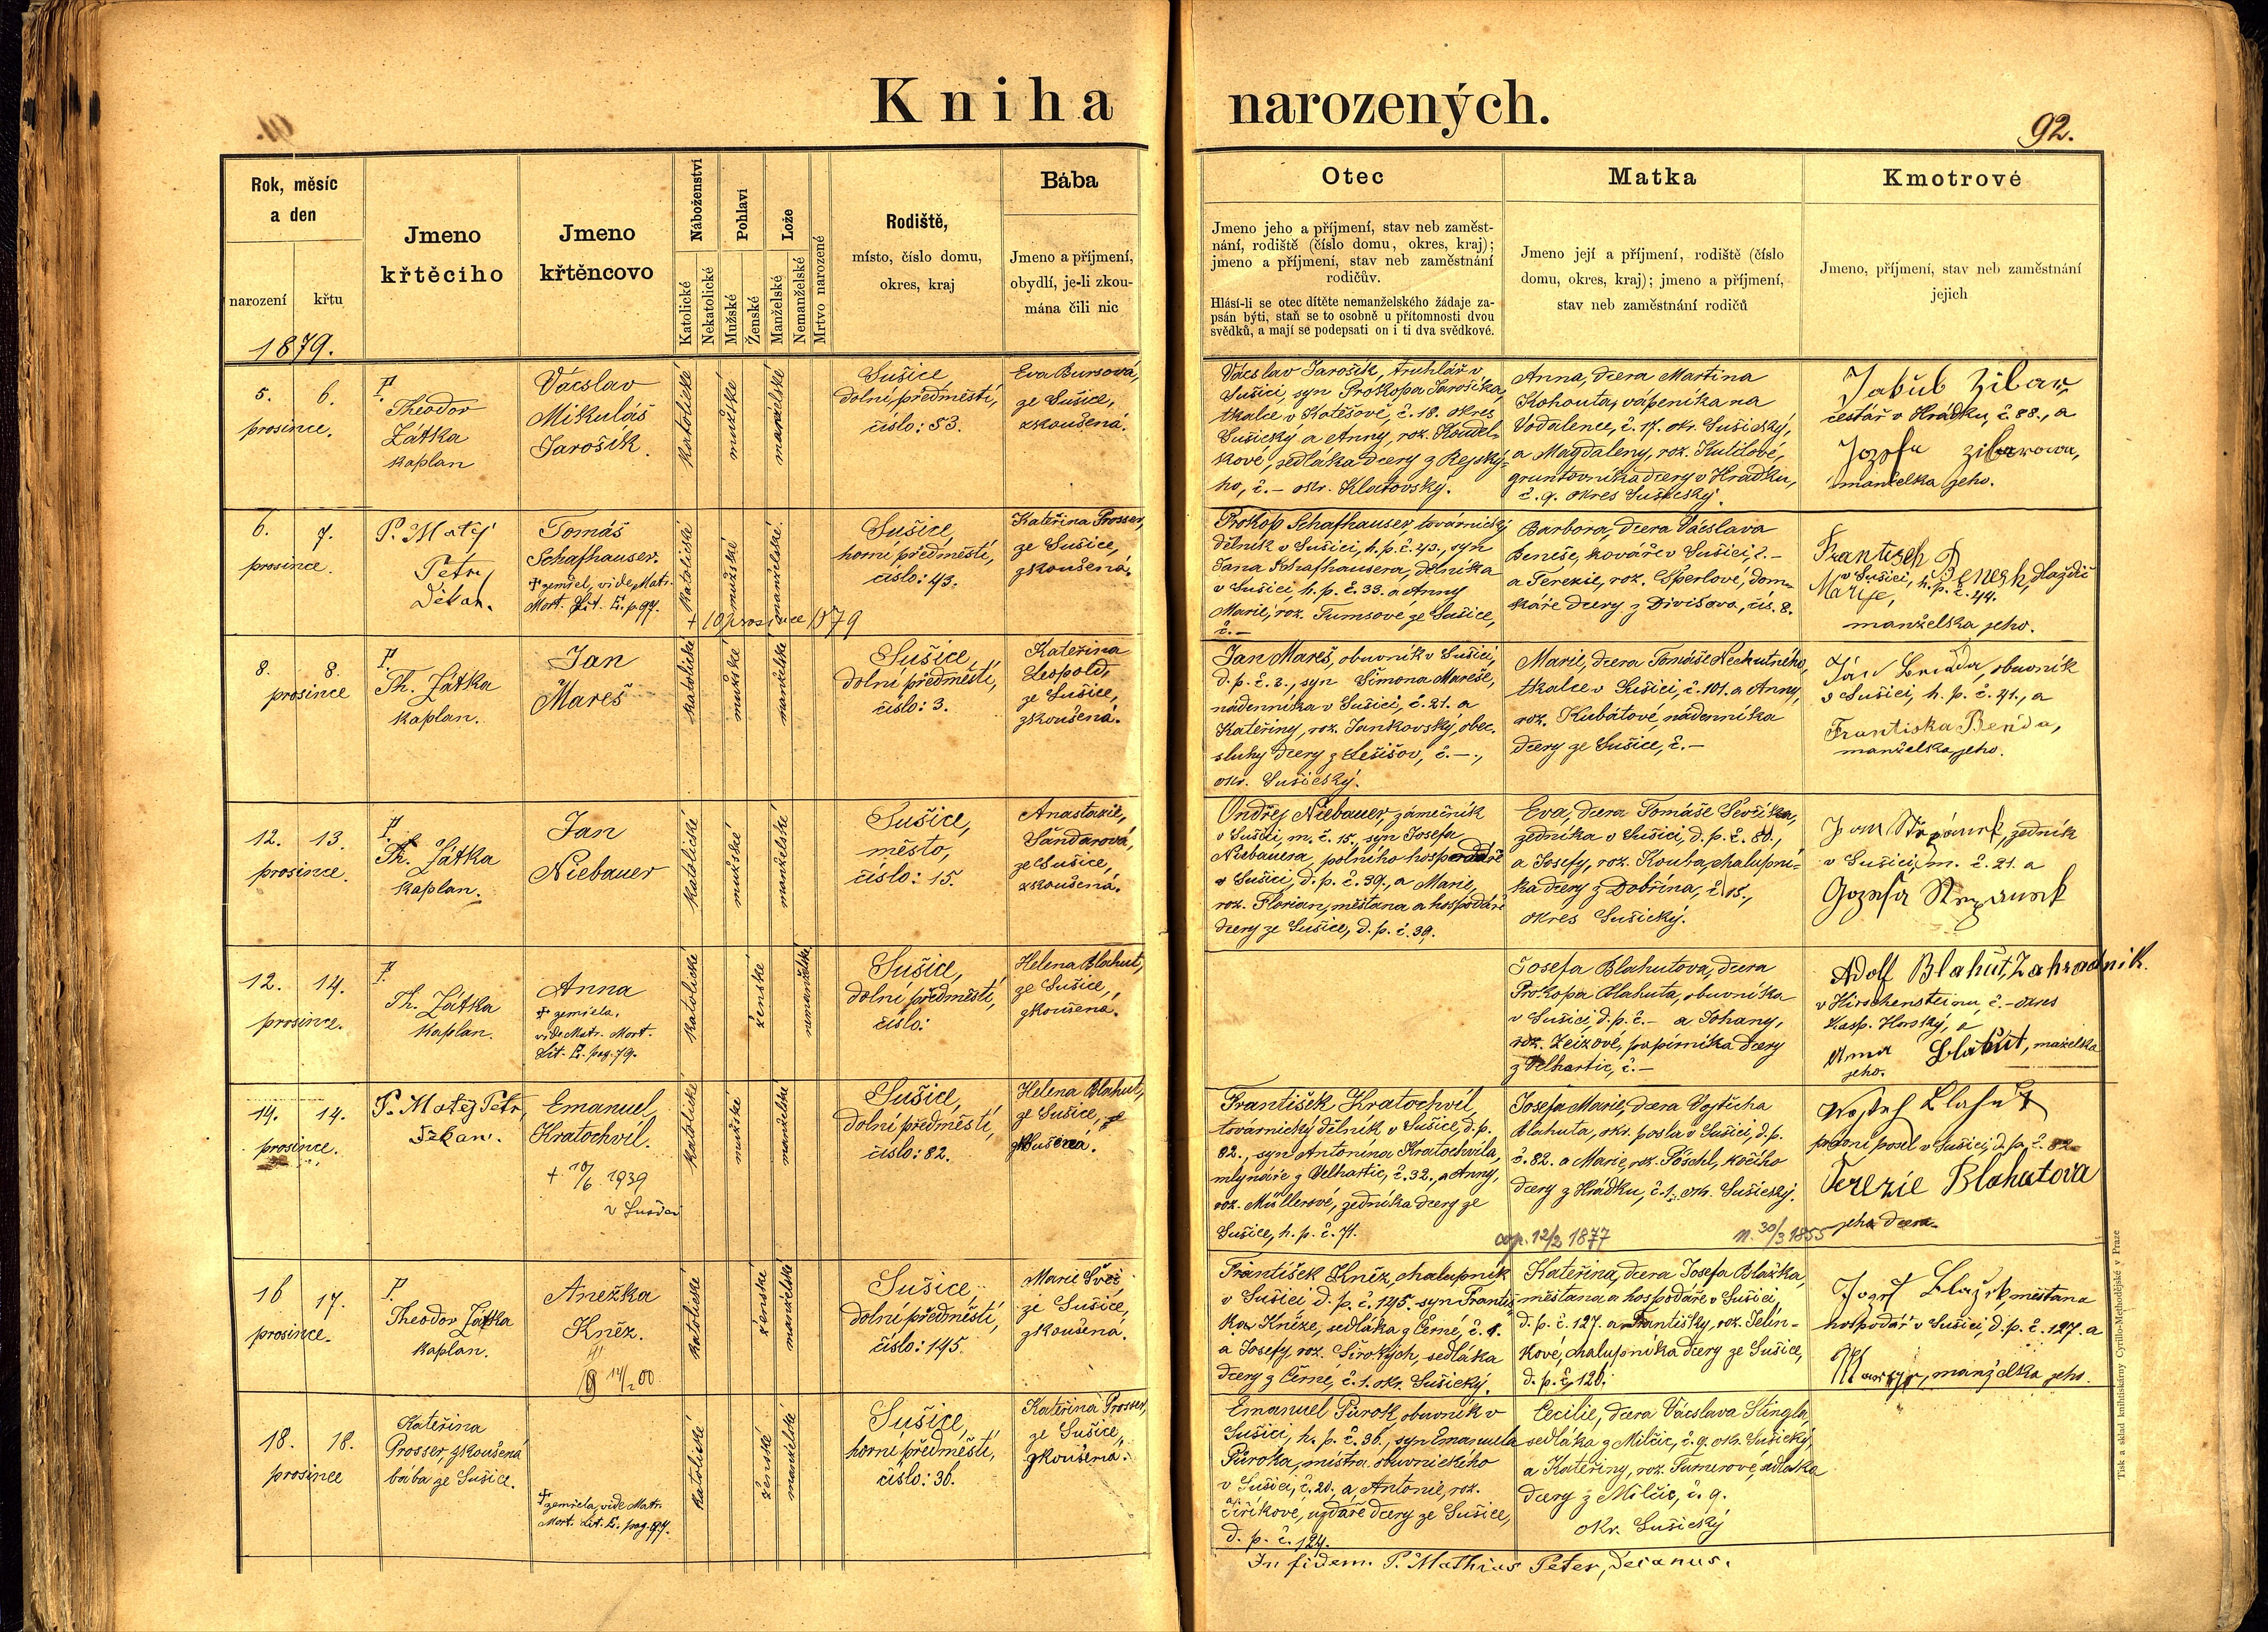 Kniha narozených.
92.
Rok, měsíc
a den
narození
křtu
1879.
Jmeno
křtěcího
Jmeno
křtěncovo
Náboženství
Katolické
Nekatolické
Pohlaví
Mužské
Ženské
Lože
Manželské
Nemanželské
Mrtvo narozené
Rodiště,
místo, číslo domu,
okres, kraj
Bába
Jmeno a příjmení,
obydlí, je-li zkou-
mána čili nic
Otec
Jmeno jeho a příjmení, stav neb zaměst-
nání, rodiště (číslo domu, okres, kraj);
jmeno a příjmení, stav neb zaměstnání
rodičův.
Hlásí-li se otec dítěte nemanželského žádaje za-
psán býti, staň se to osobně u přítomnosti dvou
svědků, a mají se podepsati on i ti dva svědkové.
Matka
Jmeno její a příjmení, rodiště (číslo
domu, okres, kraj); jmeno a příjmení,
stav neb zaměstnání rodičů
Kmotrové
Jmeno, příjmení, stav neb zaměstnání
jejich
5. 6.
prosince.
P.
Theodor
Zátka
kaplan
Vácslav
Mikuláš
Jarošík.
katolické
mužské
manželské
Sušice
dolní předměstí,
číslo: 53.
Eva Bursová,
ze Sušice,
zkoušená.
Vácslav Jarošík, truhlář v
Sušici, syn Prokopa Jarošíka,
tkalce v Kotěšově, č. 18. okres
Sušický a Anny, roz. Koudel-
kové, sedláka dcery z Rejský-
ho, č. – okr. Klatovský.
Anna, dcera Martina
Kohouta, vápeníka na
Vodolence, č. 17. okr. Sušický,
a Magdaleny, roz. Kutilové,
gruntovníka dcery v Hrádku,
č. 9. okres Sušický.
Jakub
cestář v Hrádku, č. 88., a
Jozefa
manželka jeho.
6. 7.
prosince.
P. Matěj
Petr,
Děkan.
Tomáš
Schafhauser.
† zemřel, vide Matr.
Mort. Lit. E. p. 97.
katolické
mužské
manželské.
† 10 prosince 1879
Sušice,
horní předměstí,
číslo: 43.
Kateřina Prosser,
ze Sušice,
zkoušená.
Prokop Schafhauser, továrnický
dělník v Sušici, h. p. č. 43., syn
Jana Schafhausera, dělníka
v Sušici, h. p. č. 33. a Anny
Marie, roz. Tumsové ze Sušice,
č. –
Barbora, dcera Vácslava
Beneše, kováře v Sušici, č. –
a Terezie, roz. Šperlové, dom-
káře dcery z Divišova, čís. 8.
Frantizek Benesh, dlaždič
v Sušici, h. p. č. 44.
manželka jeho.
8. 8.
prosince
P.
Th. Zátka
kaplan.
Jan
Mareš
katolické
mužské
manželské
Sušice,
dolní předměstí,
číslo: 3.
Kateřina
Leopold,
ze Sušice,
zkoušená.
Jan Mareš, obuvník v Sušici,
d. p. č. 3., syn Šimona Mareše,
nádenníka v Sušici, č. 21. a
Kateřiny, roz. Jankovský, obec.
sluhy dcery z Lešišov, č. –.,
okr. Sušický.
Marie, dcera Tomáše Nechutného,
tkalce v Sušici, č. 101. a Anny,
roz. Kubátové, nádenníka
dcery ze Sušice, č. –
Ján obuvník
v Sušici, h. p. č. 41., a
Frantiska Benda,
manželka jeho.
12. 13.
prosince.
P.
Th. Zátka
kaplan.
Jan
Niebauer
katolické
mužské
manželské
Sušice,
město,
číslo: 15.
Anastazie,
Šandarová,
ze Sušice,
zkoušená.
Ondřej Niebauer, zámečník
v Sušici, m. č. 15., syn Josefa
Niebauera, polního hospodáře
v Sušici, d. p. č. 39., a Marie,
roz. Florian, měšťana a hospodáře
dcery ze Sušice, d. p. č. 39.
Eva, dcera Tomáše Ševčíka,
zedníka v Sušici, d. p. č. 80.,
a Josefy, roz. Kouba, chalupní-
ka dcery z Dobřína, č. 15.,
okres Sušický.
Jan zedník
v Sušici, m. č. 21. a
12. 14.
prosince.
P.
Th. Zátka
kaplan.
Anna
† zemřela,
vide Matr. Mort.
Lit. E. pag. 79.
katolické
ženské
nemanželské
Sušice,
dolní předměstí,
číslo:
Helena Blahut,
ze Sušice,
zkoušená.
Josefa Blahutova, dcera
Prokopa Blahuta, obuvníka
v Sušici, d. p. č. – a Johany,
roz. Zeizové, papírníka dcery
z Velhartic, č. –
Adolf Blahůt, Zahradník.
v Hirschensteinu, č. – okres
Kašp. Horský, a
Anna Blahůt, mažełka
jeho.
14. 14.
prosince.
P. Matěj Petr,
Děkan.
Emanuel
Kratochvíl.
† 10/6 1939
v Sušici
katolické
mužské
manželské
Sušice,
dolní předměstí,
číslo: 82.
Helena Blahut,
ze Sušice,
zkušená.
František Kratochvíl,
továrnický dělník v Sušici, d. p.
82., syn Antonína Kratochvíla,
mlynáře z Velhartic, č. 32., a Anny,
roz. Müllerové, zedníka dcery ze
Sušice, h. p. č. 71.
Josefa Marie, dcera Vojtěcha
Blahuta, okr. posla v Sušici, d. p.
č. 82. a Marie, roz. Pöschl, kočího
dcery z Hrádku, č. 1. okr. Sušický.
cop. 12/2 1877
n. 30/3 1855
posel v Sušici, d. p. č. 82
Terezie Blahutova
jeho dcera.
16 17.
prosince.
P.
Theodor Zátka
kaplan.
Anežka
Kněz.
14/2 00
katolické
ženské
manželské
Sušice,
dolní předměstí,
číslo: 145.
Marie Švei,
ze Sušice,
zkoušená.
František Kněz, chalupník
v Sušici d. p. č. 145. syn Františ-
ka Kněze, sedláka z Černé, č. 1.
a Josefy, roz. Širokých, sedláka
dcery z Černé, č. 1. okr. Sušický.
Kateřina, dcera Josefa Blažka,
měšťana a hospodáře v Sušici,
d. p. č. 127. a Františky, roz. Jelín-
kové, chalupníka dcery ze Sušice,
d. p. č. 120.
Jozef měšťana
hospodář v Sušici, d. p. č. 127. a
manželka jeho.
18. 18.
prosince
Kateřina
Prosser, zkoušená
bába ze Sušice.
† zemřela, vide Matr.
Mort. Lit. E. pag. 97.
katolické
ženské
manželské
Sušice,
horní předměstí,
číslo: 36.
Kateřina Prosser,
ze Sušice,
zkoušená.
Emanuel Půrok, obuvník v
Sušici, h. p. č. 36., syn Emanuela
Půroka, mistra obuvnického
v Sušici, č. 20., a Antonie, roz.
Jiříkové, uzdáře dcery ze Sušice,
d. p. č. 124.
Cecilie, dcera Vácslava Stingla,
sedláka z Milčic, č. 9. okr. Sušický,
a Kateřiny, roz. Tumerove, sedláka
dcery z Milčic, č. 9.
okr. Sušický
In fidem. P. Mathias Peter, Decanus.
Tisk a sklad knihtiskárny Cyrillo-Methodějské v Praze